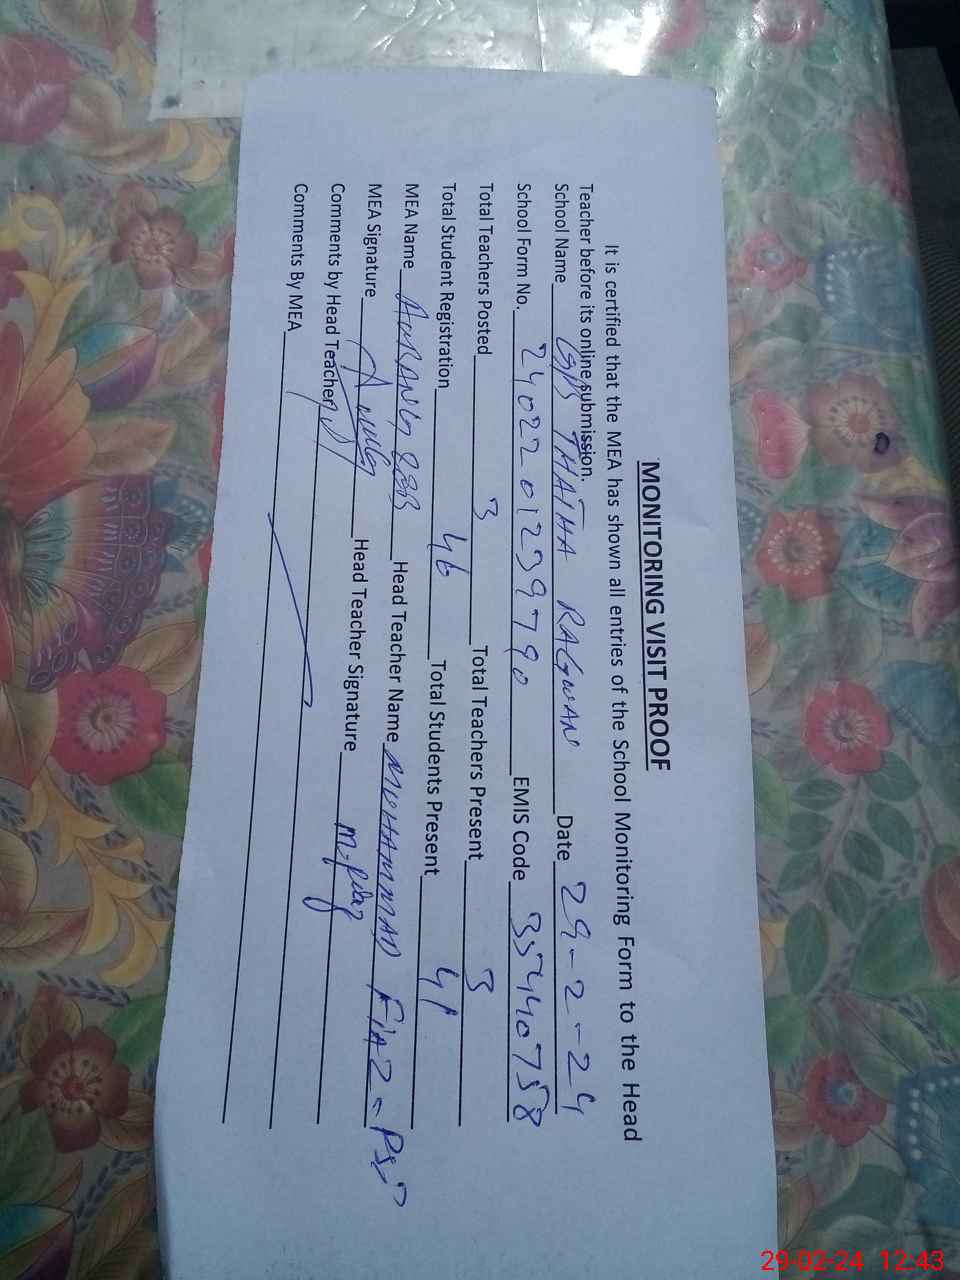 MONITORING VISIT PROOF
It is certified that the MEA has shown all entries of the School Monitoring Form to the Head
Teacher before its online submission.
School Name GPS THATHA RAGWAN Date 29-2-24
School Form No. 2402201239790 EMIS Code 35440758
Total Teachers Posted 3 Total Teachers Present 3
Total Student Registration 46 Total Students Present 41
MEA Name AURANG ZEB Head Teacher Name MUHAMMAD FIAZ-PST
MEA Signature Head Teacher Signature M. Fiaz
Comments by Head Teacher
Comments By MEA
29-02-24 12:43